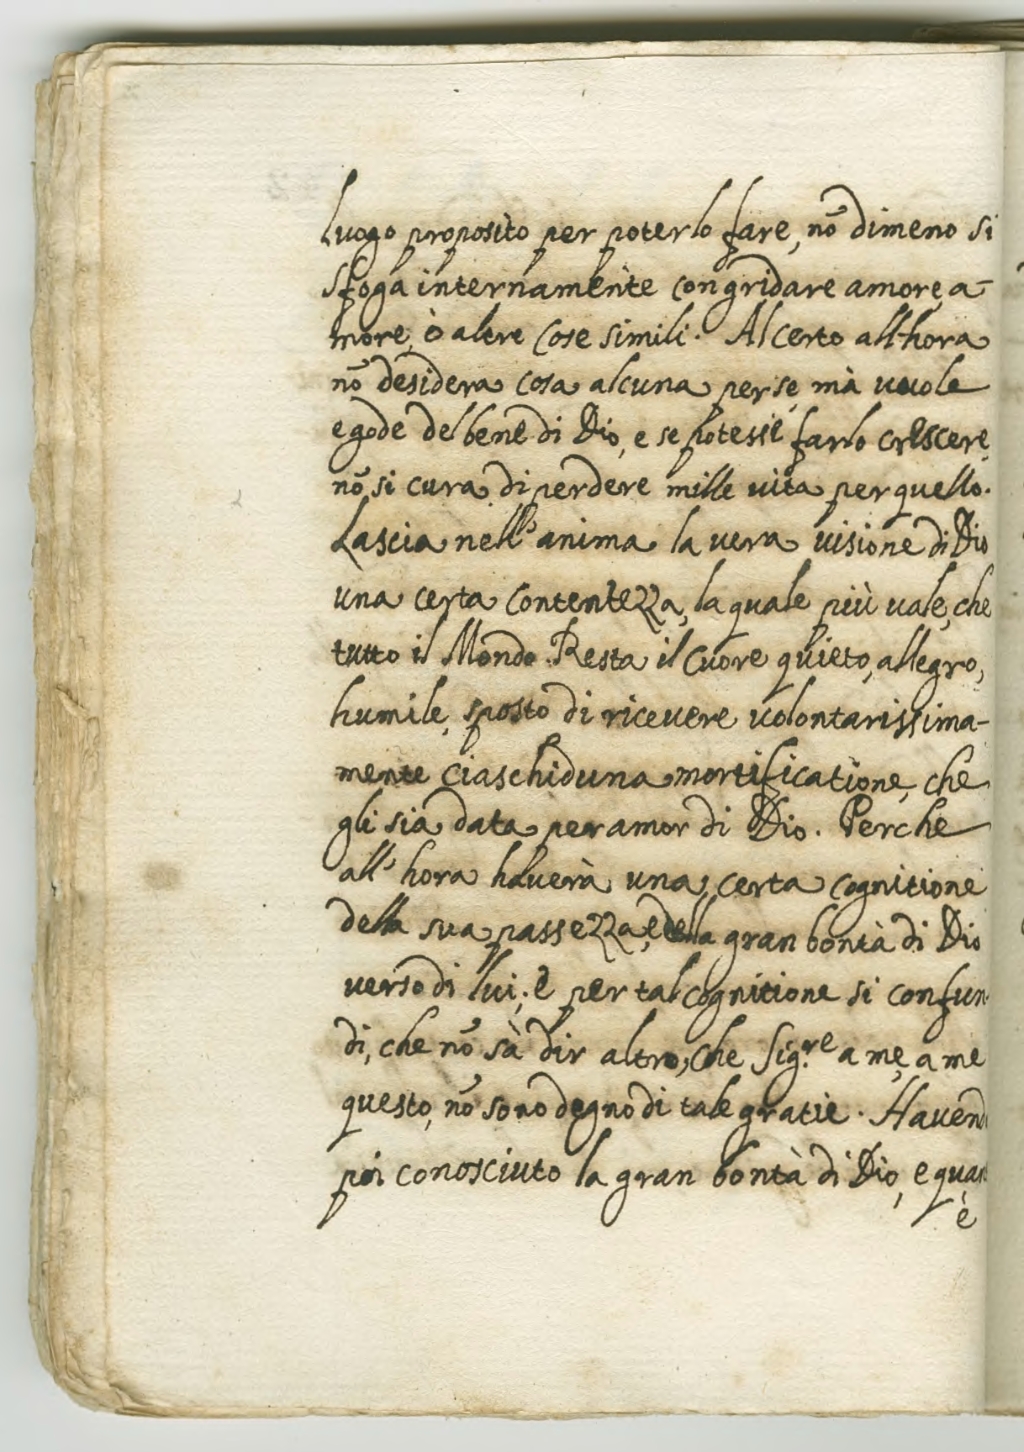 luogo proposito per poterlo fare, nō dimeno si
sfoga internamente con gridare amore, a-
more, ò altre cose simili. Al certo all'hora
nō desidera cosa alcuna per se, mà uuole
e gode del bene di Dio, e se potesse farlo crescere,
nō si cura di perdere mille uita per quello.
Lascia nell'anima la uera uisione di Dio
una certa contentezza, la quale più uale, che
tutto il Mondo. Resta il cuore quieto, allegro,
humile, sposto di riceuere uolontarissima-
mente ciaschiduna mortificatione, che
gli sia data per amor di Dio. Perche
all'hora hauerà una certa cognitione
della sua passezza, e della gran bontà di Dio
uerso di lui; e per tal cognitione si confun-
di, che nō sà dir altro, che Sig.re a me, a me
questo, nō sono degno di tale gratie. Hauend
poi conosciuto la gran bontà di Dio, e quan
è